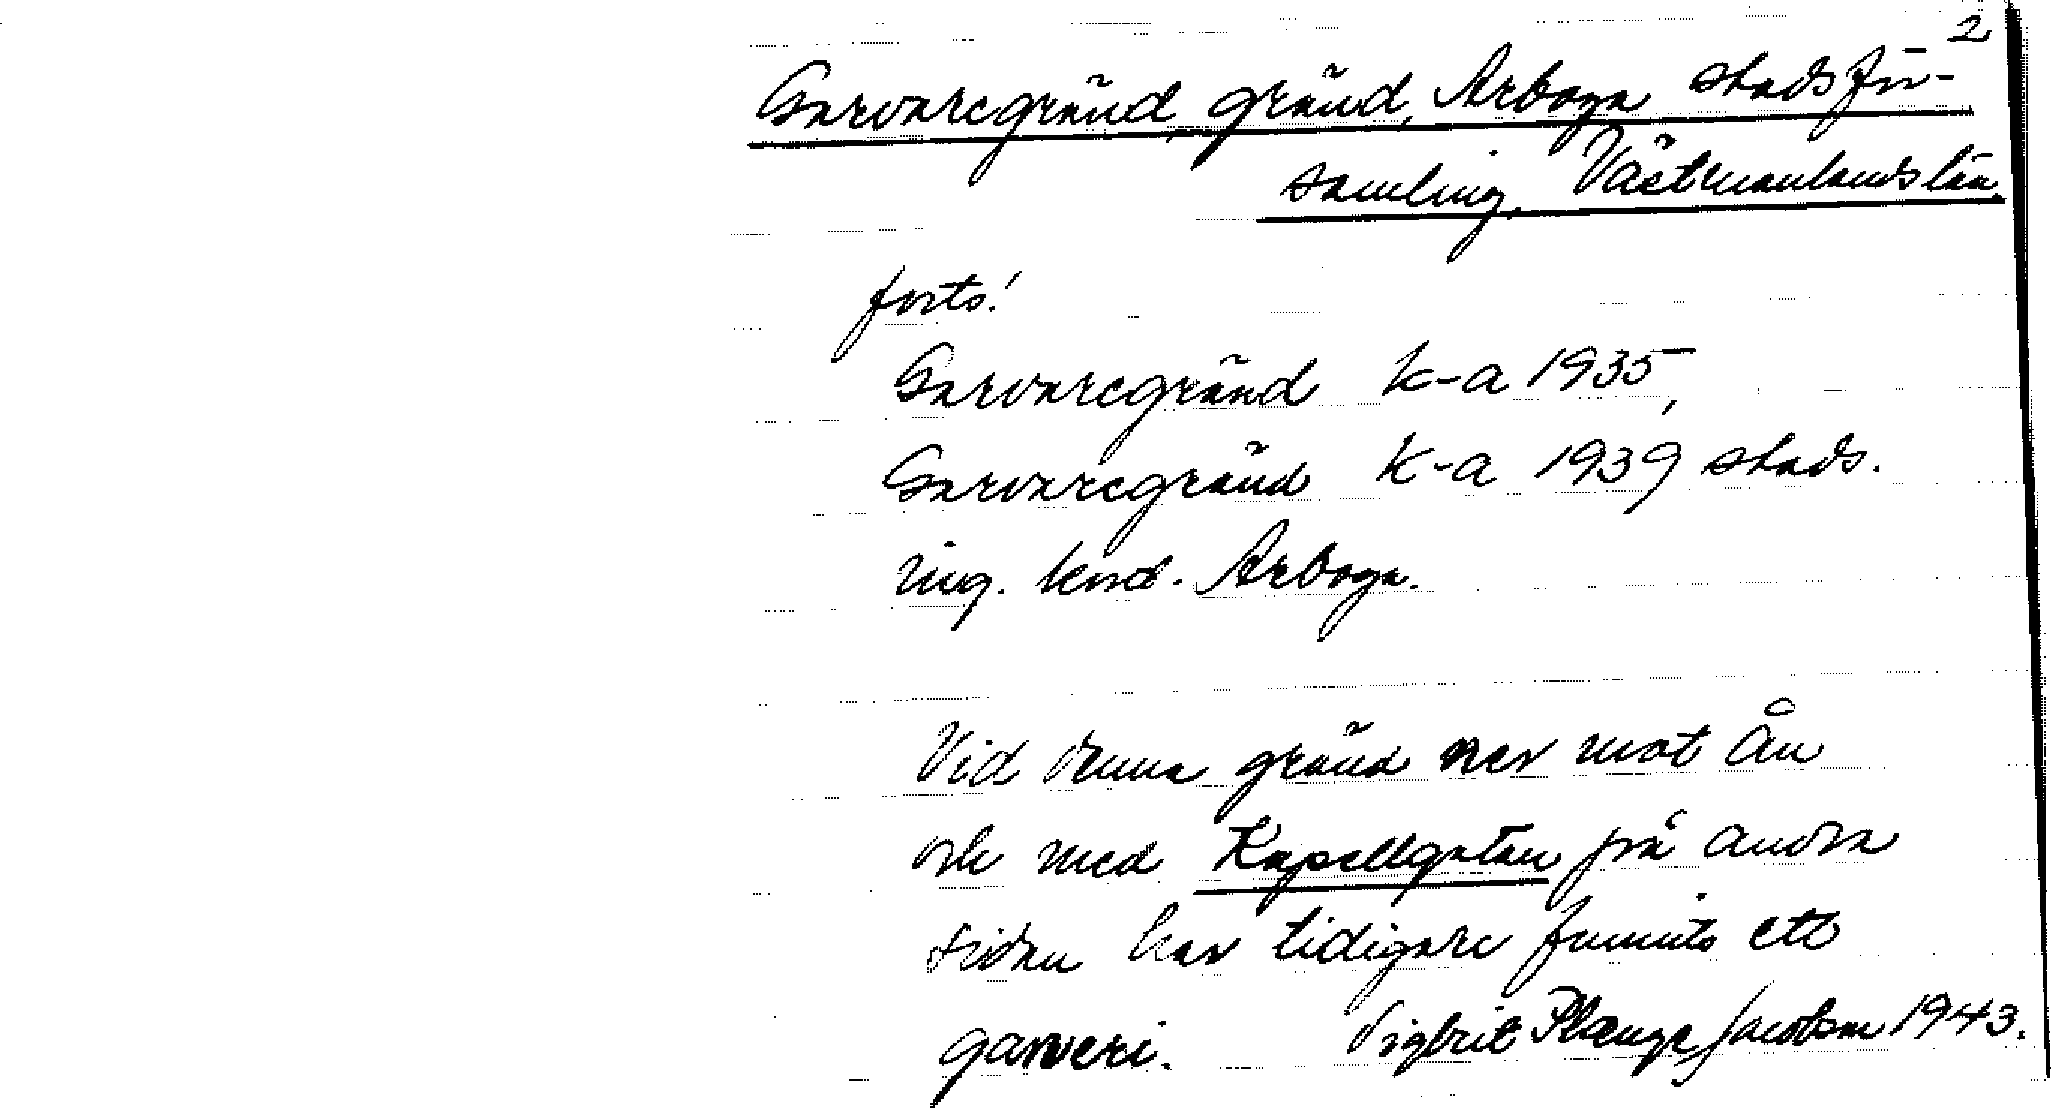 2
Garvaregränd, gränd, Arboga stadsför-
samling, Västmanlands län.
forts.
Garvaregränd k-a 1935,
Garvaregränd k-a 1939 stads.
ing. kend. Arboga.
Vid denna gränd ner mot ån
och med Kapellgatan på andra
sidan har tidigare funnits ett
garveri. Sigbrit Plænge Jacobson 1943.